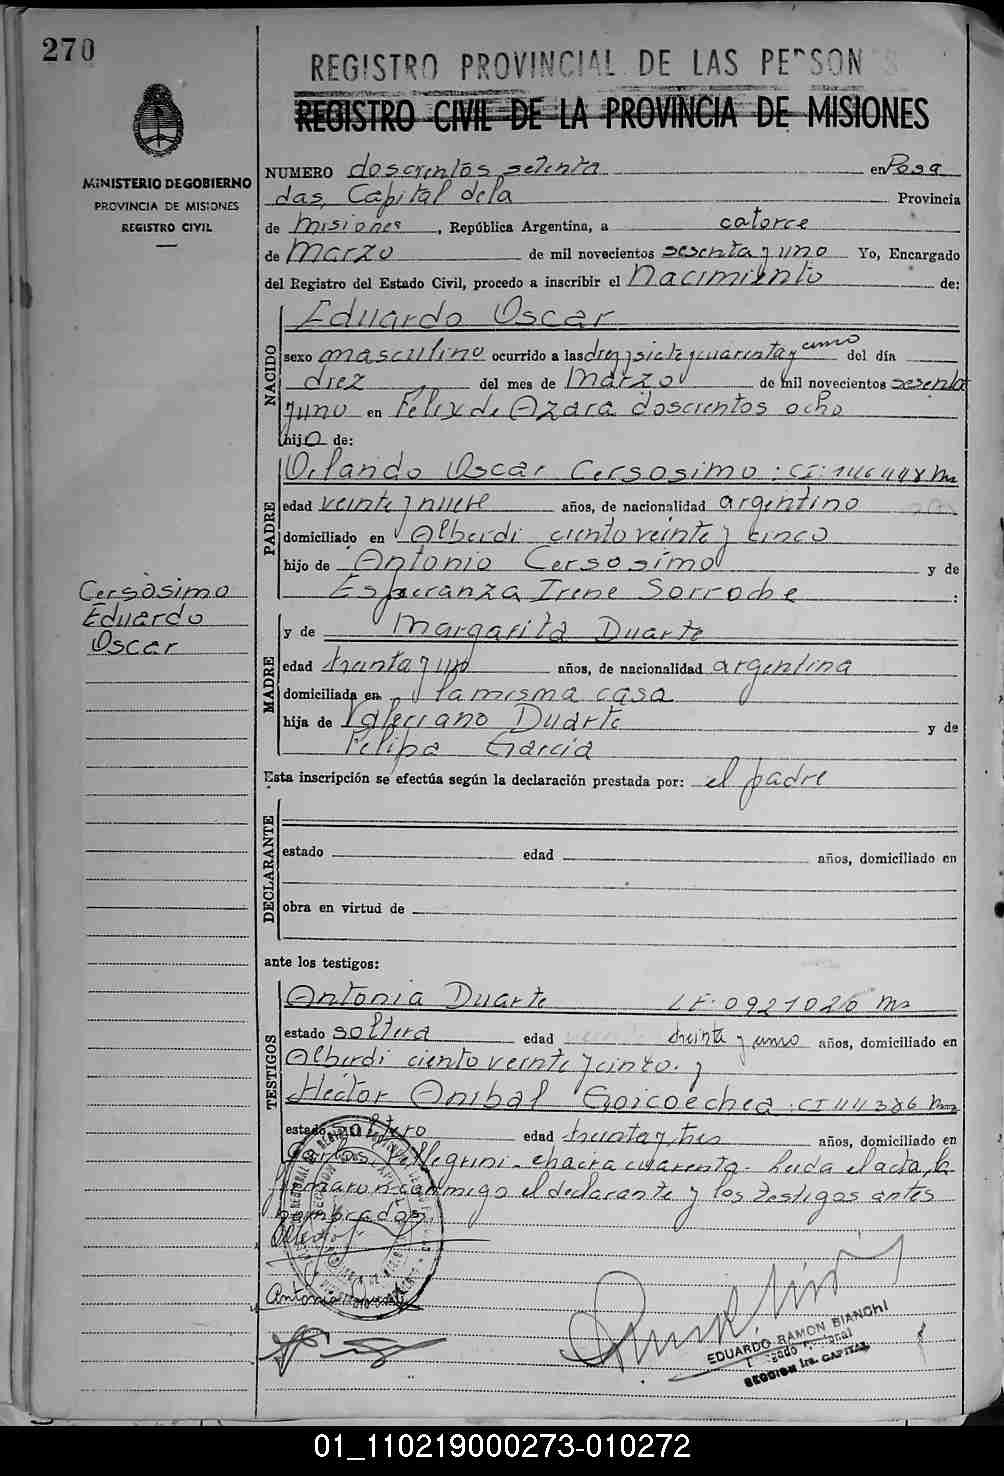 270
REGISTRO PROVINCIAL DE LAS PERSONAS
REGISTRO CIVIL DE LA PROVINCIA DE MISIONES
MINISTERIO DE GOBIERNO
PROVINCIA DE MISIONES
REGISTRO CIVIL
NUMERO doscientos setenta en Posa
das, Capital dela Provincia
de Misiones, República Argentina, a catorce
de Marzo de mil novecientos sesenta y uno Yo, Encargado
del Registro del Estado Civil, procedo a inscribir el Nacimiento de:
NACIDO
Eduardo Oscar
sexo masculino ocurrido a las diez y siete y cuarenta y cinco del día
diez del mes de Marzo de mil novecientos sesenta
y uno en Felix de Azara doscientos ocho
hijo de:
PADRE
Orlando Oscar Cersosimo: CI: 146448 Ms
edad veinte y nueve años, de nacionalidad argentino
domiciliado en Alberdi ciento veinte y cinco
hijo de Antonio Cersosimo y de
Esperanza Irene Sorroche :
Cersosimo
Eduardo
Oscar
MADRE
y de Margarita Duarte
edad treinta y uno años, de nacionalidad argentina
domiciliada en la misma casa
hija de Valeriano Duarte y de
Felipa Garcia
Esta inscripción se efectúa según la declaración prestada por: el padre
DECLARANTE
estado edad años, domiciliado en
obra en virtud de
ante los testigos:
TESTIGOS
Antonia Duarte LF: 0921026 Ms
estado soltera edad treinta y uno años, domiciliado en
Alberdi ciento veinte y cinco. y
Héctor Anibal Goicoechea: CI 44386 Ms
estado soltero edad treinta y tres años, domiciliado en
Carlos Pellegrini - chacra cuarenta. Leida el acta, la
firmaron conmigo el declarante y los testigos antes
nombrados.
Antonia Duarte
EDUARDO RAMON BIANCHI
SECCION 1ra. CAPITAL
01_110219000273-010272